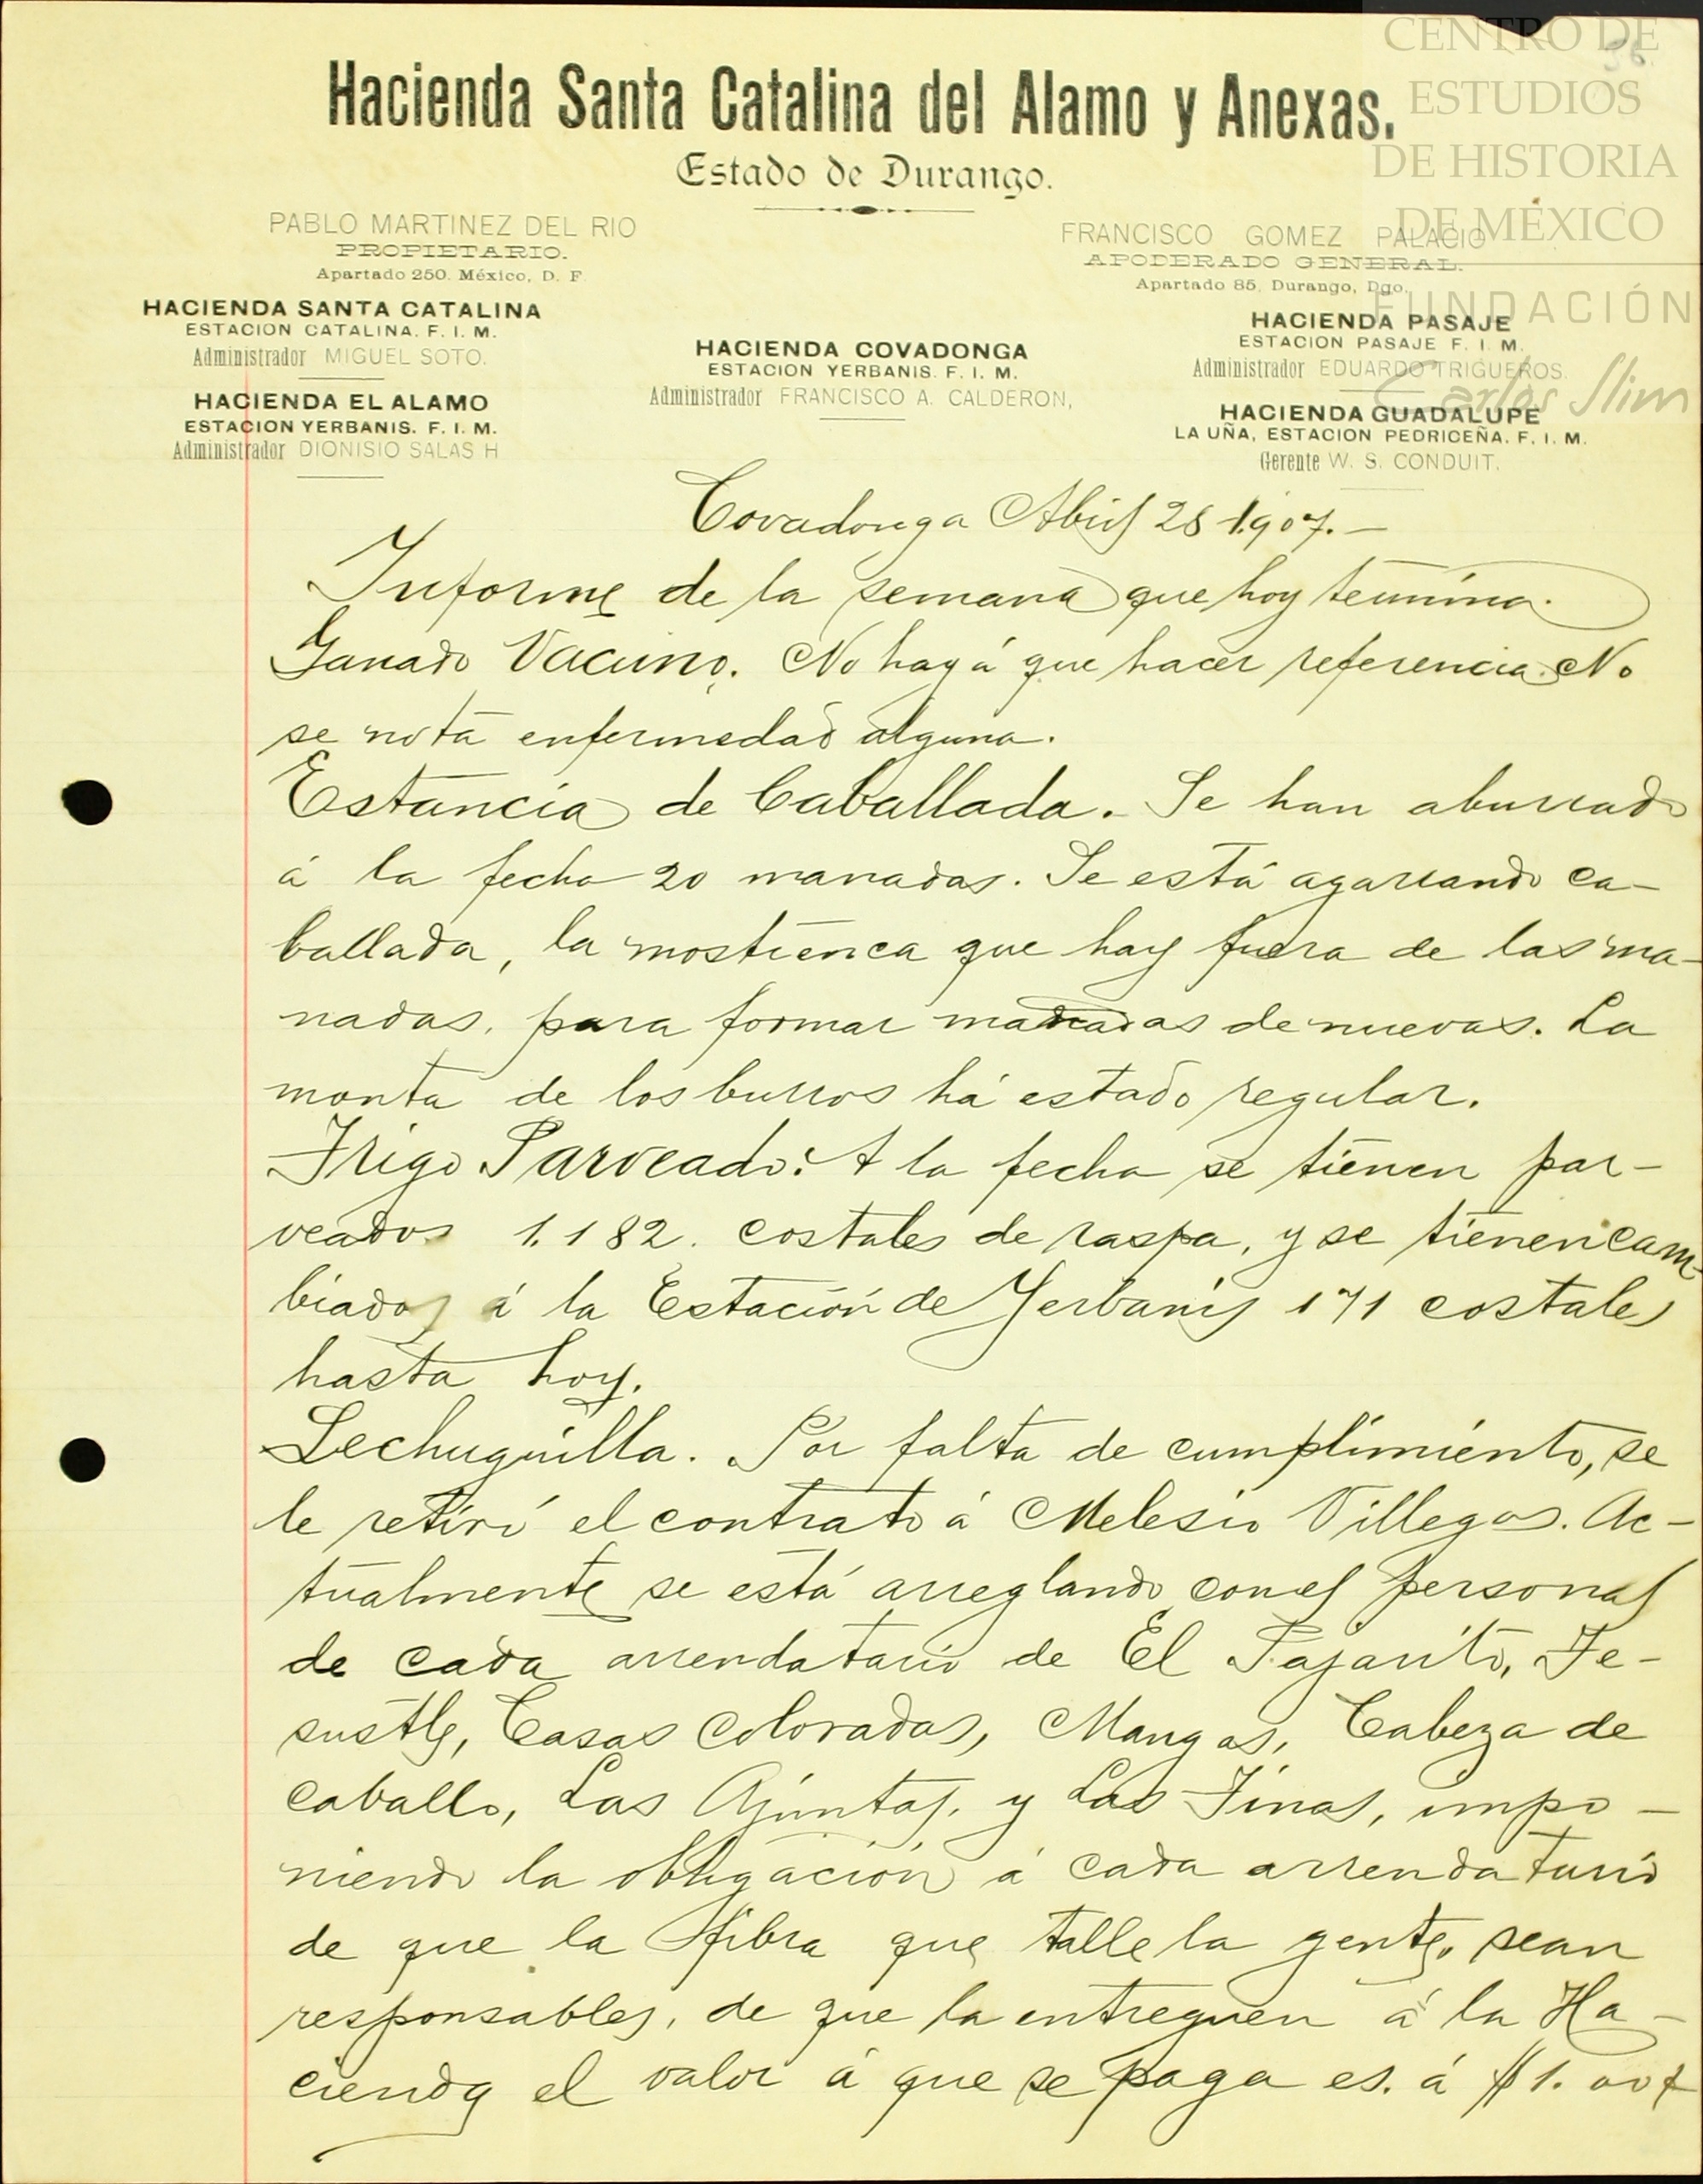 CENTRO DE
ESTUDIOS
DE HISTORIA
DE MÉXICO
FUNDACIÓN
Carlos Slim
36.
Hacienda Santa Catalina del Alamo y Anexas.
Estado de Durango.
PABLO MARTINEZ DEL RIO
PROPIETARIO.
Apartado 250. México, D. F.
FRANCISCO GOMEZ PALACIO
APODERADO GENERAL.
Apartado 85, Durango, Dgo.
HACIENDA SANTA CATALINA
ESTACION CATALINA. F. I. M.
Administrador MIGUEL SOTO.
HACIENDA EL ALAMO
ESTACION YERBANIS. F. I. M.
Administrador DIONISIO SALAS H
HACIENDA COVADONGA
ESTACION YERBANIS. F. I. M.
Administrador FRANCISCO A. CALDERON,
HACIENDA PASAJE
ESTACION PASAJE F. I. M.
Administrador EDUARDO TRIGUEROS.
HACIENDA GUADALUPE
LA UÑA, ESTACION PEDRICEÑA. F. I. M.
Gerente W. S. CONDUIT.
Covadonga Abril 28 1907.-
Informe de la semana que hoy termina.
Ganado Vacuno. No hay á que hacer referencia. No
se nota enfermedad alguna.
Estancia de Caballada. Se han aburrado
á la fecha 20 manadas. Se está agarrando ca-
ballada, la mostrenca que hay fuera de las ma-
nadas, para formar manadas de nuevas. La
monta de los burros há estado regular.
Trigo Parveado: A la fecha se tienen par-
veados 1.182. costales de raspa, y se tienen cam-
biados á la Estación de Yerbanis 171 costales
hasta hoy.
Lechuguilla. Por falta de cumplimiento, se
le retiró el contrato á Melesio Villegas. Ac-
tualmente se está arreglando con el personal
de cada arrendatario de El Pajarito, Te-
sustle, Casas Coloradas, Mangas, Cabeza de
caballo, Las Ajuntas, y Las Tinas, impo-
niendo la obligación á cada arrendatario
de que la fibra que talle la gente, sean
responsables, de que la entreguen á la Ha-
cienda el valor á que se paga es. á $1.00